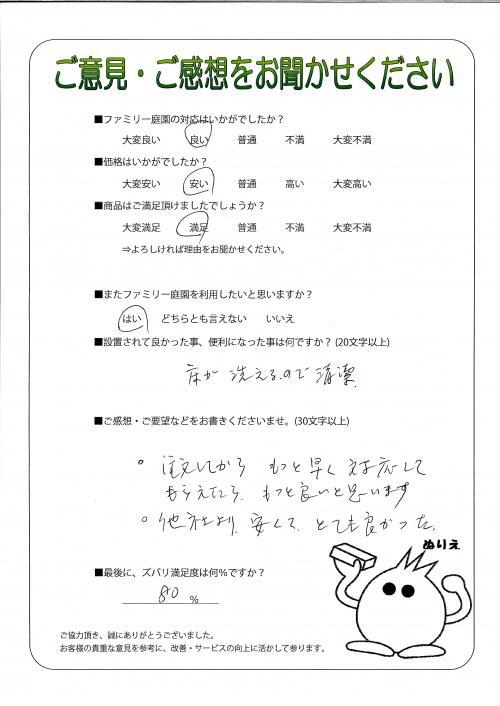 ご意見・ご感想をお聞かせください
■ファミリー庭園の対応はいかがでしたか？
大変良い 良い 普通 不満 大変不満
■価格はいかがでしたか？
大変安い 安い 普通 高い 大変高い
■商品はご満足頂けましたでしょうか？
大変満足 満足 普通 不満 大変不満
⇒よろしければ理由をお聞かせください。
■またファミリー庭園を利用したいと思いますか？
はい どちらとも言えない いいえ
■設置されて良かった事、便利になった事は何ですか？(20文字以上)
床が 洗えるので 清潔
■ご感想・ご要望などをお書きくださいませ。(30文字以上)
。注文してから もっと早く 対応して
もらえたら もっと良いと思います
。他社より、安くて、とても良かった。
ぬりえ
■最後に、ズバリ満足度は何％ですか？
80 %
ご協力頂き、誠にありがとうございました。
お客様の貴重な意見を参考に、改善・サービスの向上に活かして参ります。